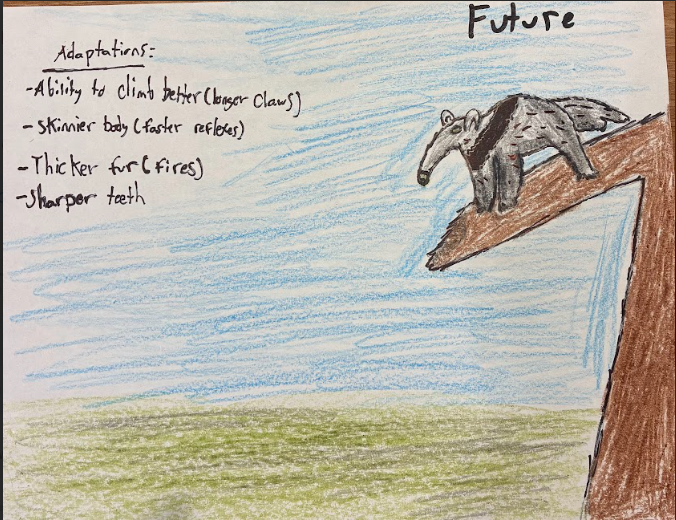 Future
Adaptations:
-Ability to climb better (longer claws)
-Skinnier body (faster reflexes)
-Thicker fur (fires)
-Sharper teeth